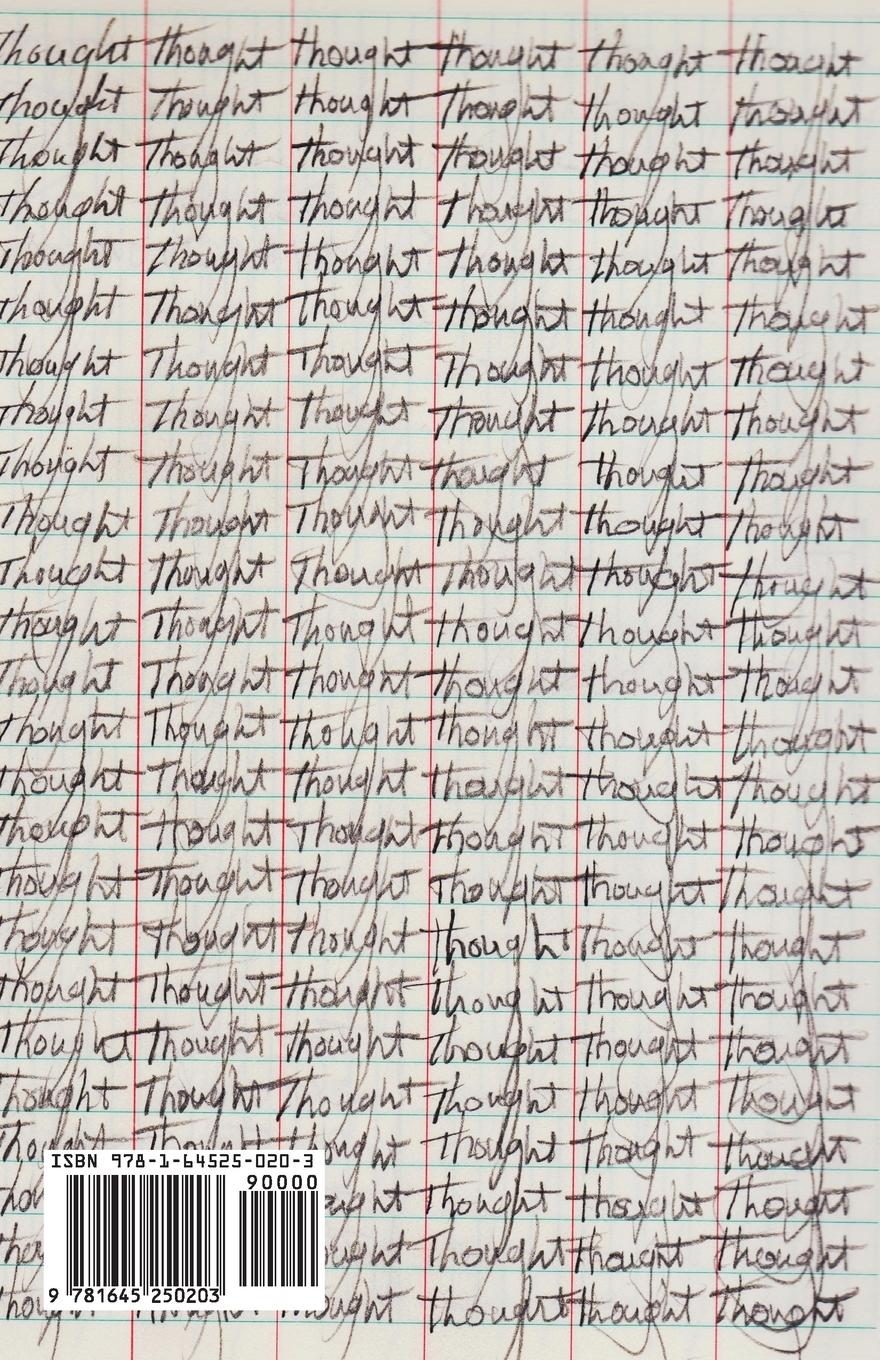 Thought Thought thought Thought thought thought
Thought Thought thought Thought thought thought
Thought Thought thought thought thought Thought
Thought Thought Thought thought thought Thought
Thought Thought thought Thought thought Thought
thought Thought Thought thought thought Thought
Thought Thought Thought Thought thought Thought
Thought Thought Thought Thought thought Thought
Thought Thought Thought thought thought Thought
Thought Thought Thought Thought thought Thought
Thought Thought Thought Thought thought thought
thought Thought Thought thought thought Thought
Thought Thought Thought thought thought Thought
Thought Thought thought thought thought thought
thought Thought thought thought thought thought
thought thought Thought thought Thought thought
Thought Thought Thought Thought thought Thought
Thought Thought thought thought Thought Thought
thought Thought thought Thought Thought Thought
Thought Thought thought Thought Thought thought
Thought Thought Thought Thought thought Thought
Thought Thought thought Thought Thought thought
ISBN 978-1-64525-020-3
90000
Thought thought Thought
Thought thought thought
9 781645 250203
thought thought Thought